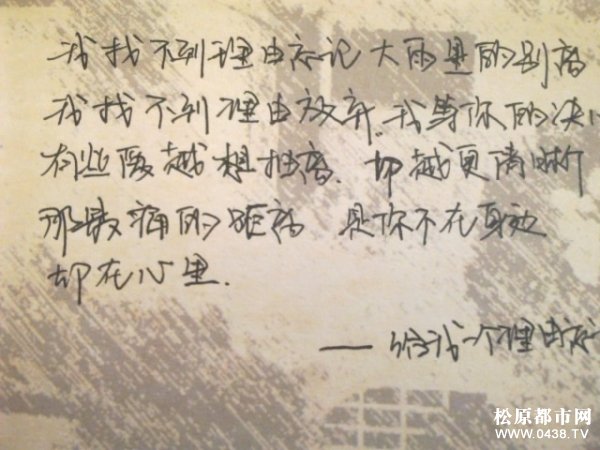 我找不到理由忘记大雨里的别离
我找不到理由放弃。我等你的决心
有些爱越想抽离、却越更清晰
那最痛的距离 是你不在身边
却在心里.
——给我一个理由忘
松原都市网
WWW.0438.TV